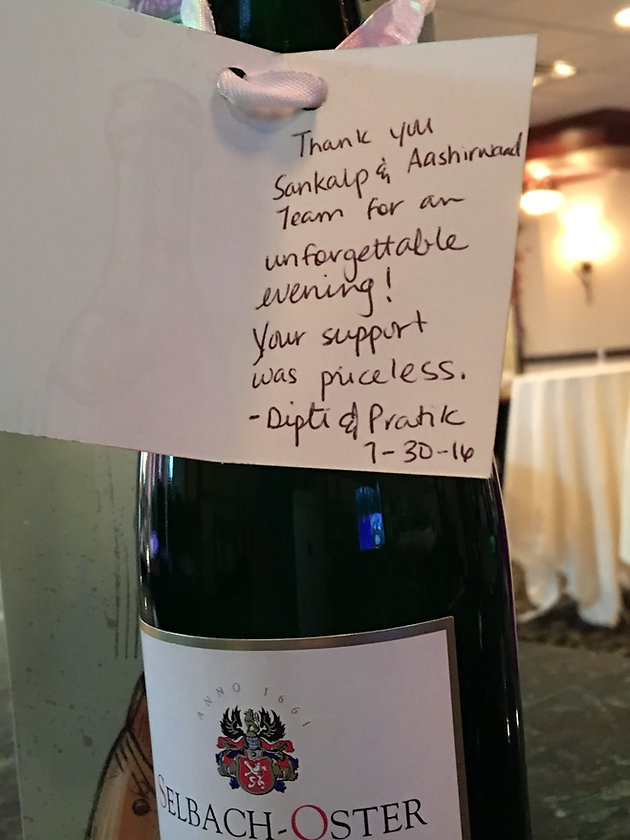 Thank you
Sankalp & Aashirwaad
Team for an
unforgettable
evening!
Your support
was priceless.
- Dipti & Pratik
7-30-16
ANNO 1661
SELBACH-OSTER